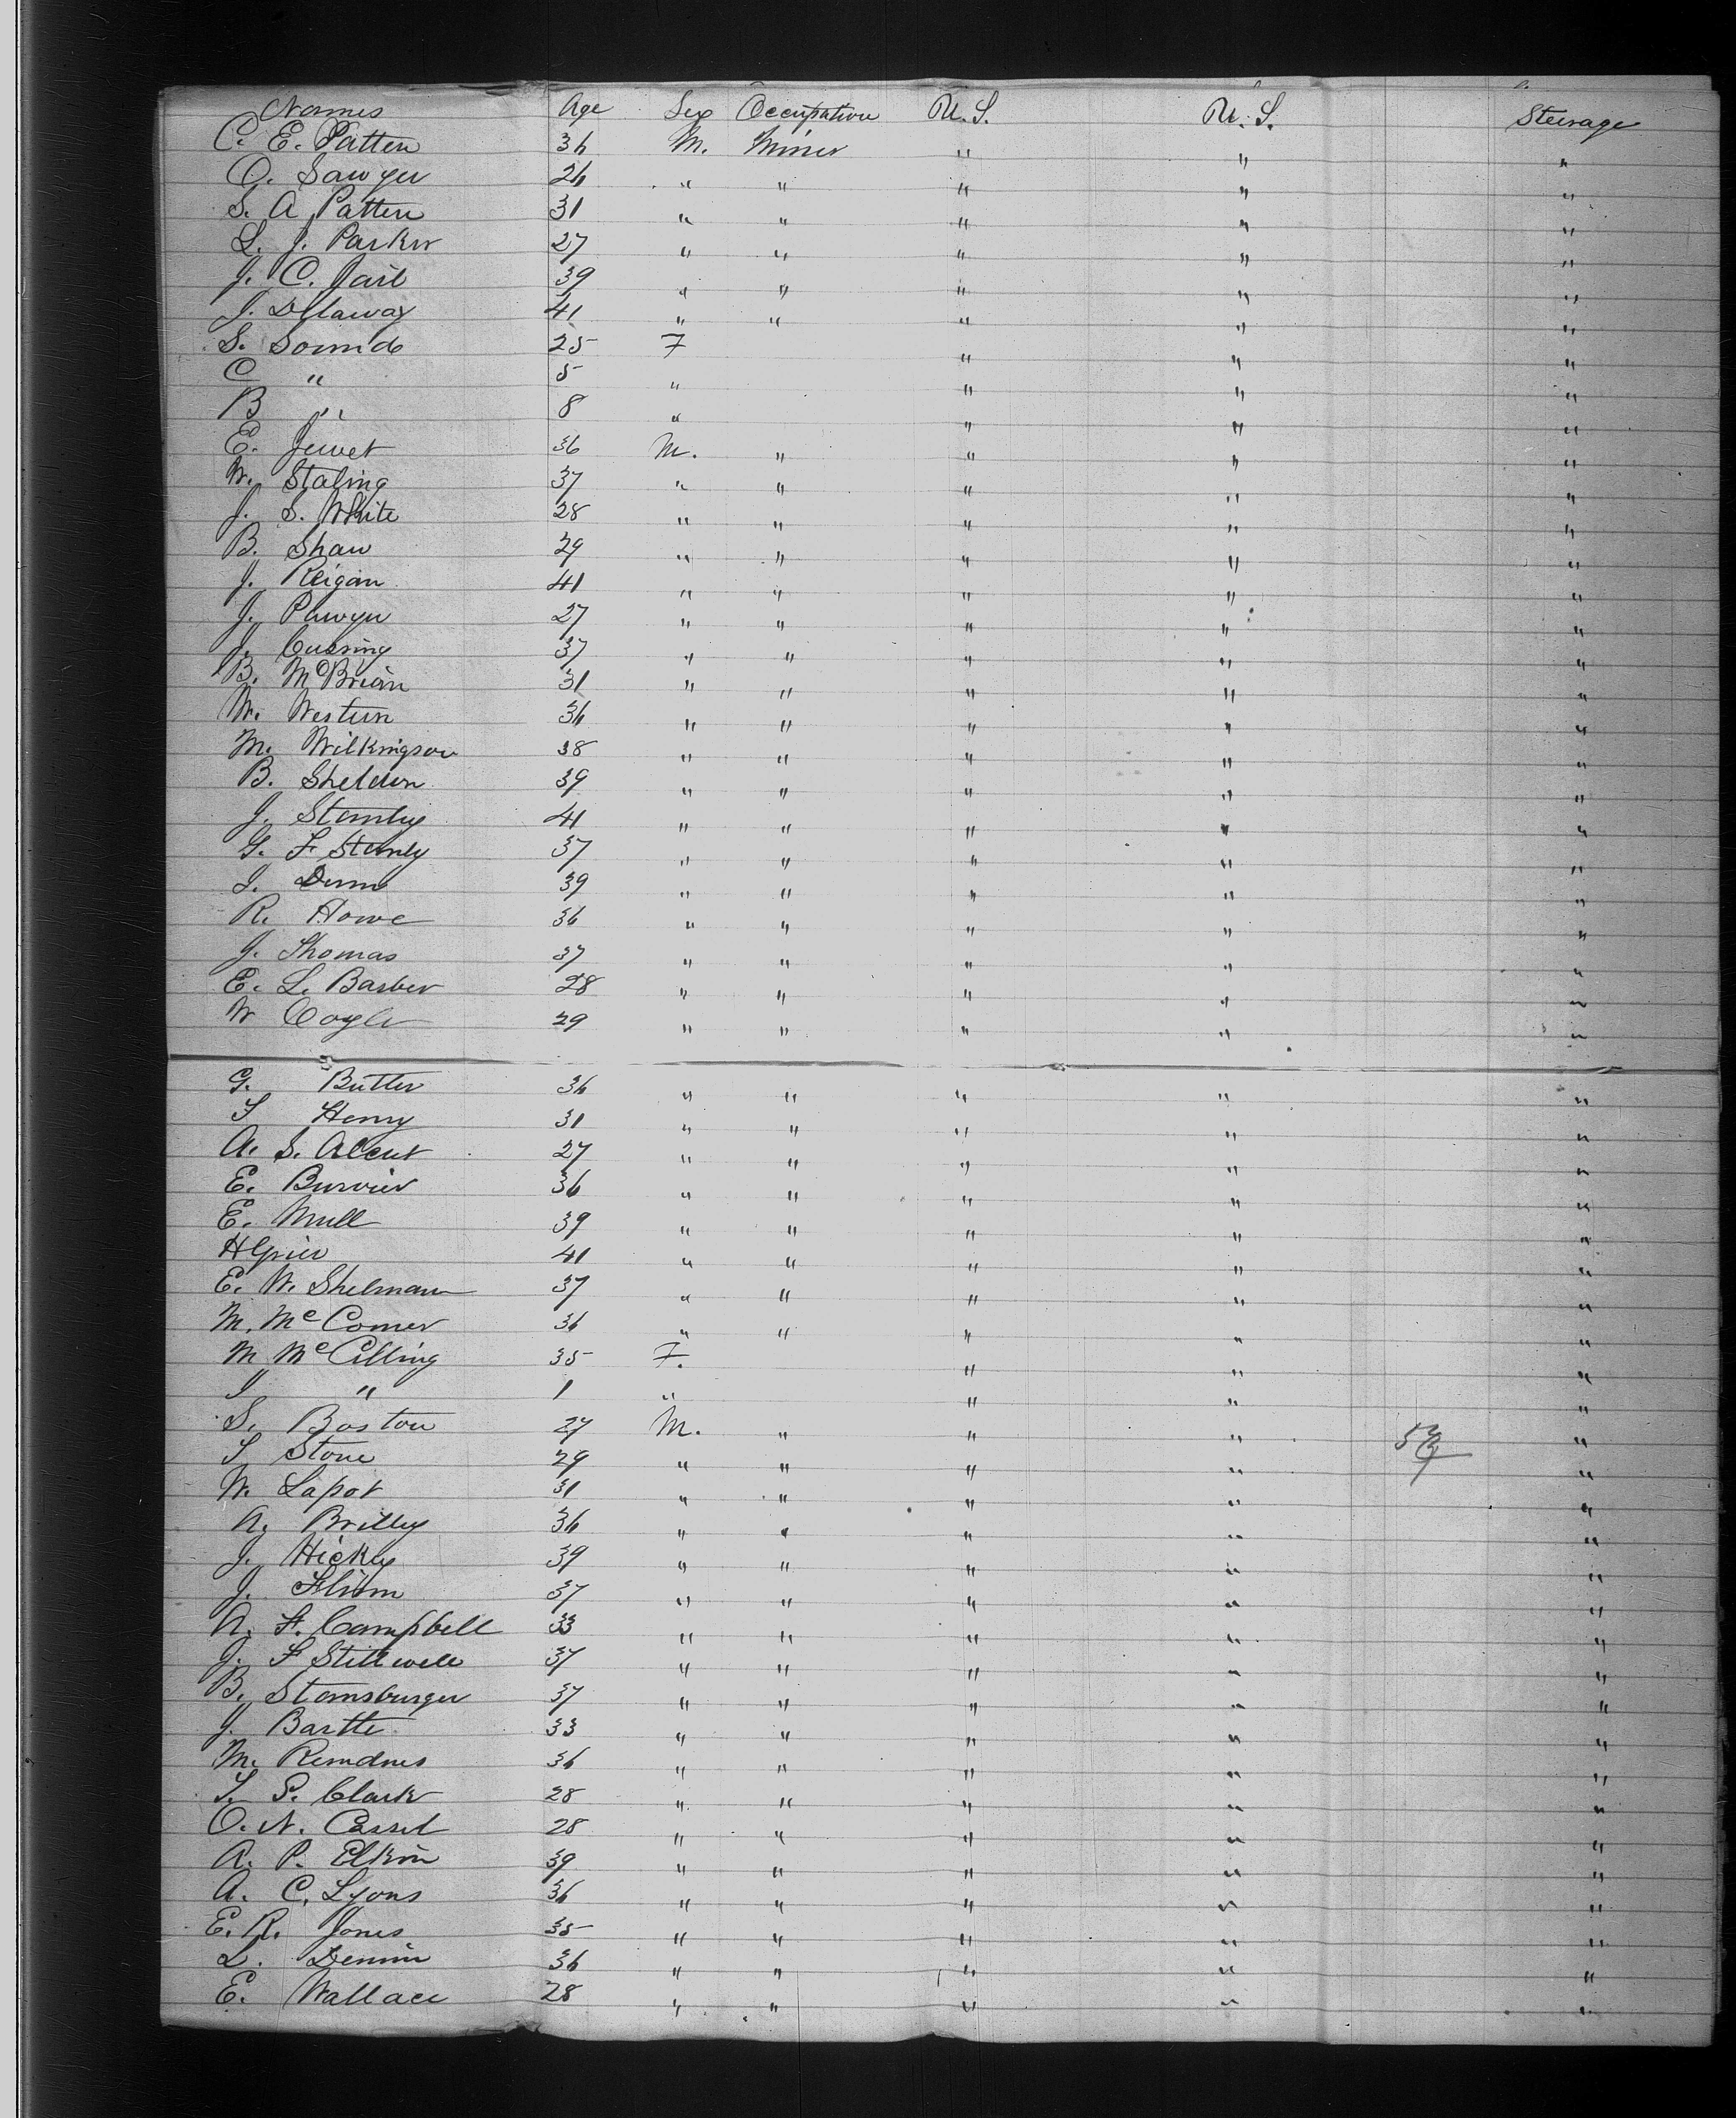 Names Age Sex Occupation U.S. U.S. Steerage
C. E. Patten 36 M. Miner " " "
O. Sawyer 26 " " " " "
S. A Patten 31 " " " " "
L. J. Parker 27 " " " " "
J. C. Jail 39 " " " " "
J. Dllaway 41 " " " " "
S. Sounde 25 F " " "
C " 5 " " " "
B " 8 " " " "
E. Jewet 36 M. " " " "
W. Staling 37 " " " " "
J. S. White 28 " " " " "
B. Shaw 29 " " " " "
J. Reigan 41 " " " " "
J. 27 " " " " "
J. Cussing 37 " " " " "
B. McBrian 31 " " " " "
W. Western 36 " " " " "
M. Wilkingson 38 " " " " "
B. Sheldon 39 " " " " "
J. Stanley 41 " " " " "
G. F. Stanly 37 " " " " "
J. Dunn 39 " " " " "
R. Howe 36 " " " " "
J. Thomas 37 " " " " "
E. L. Barber 28 " " " " "
W Coyle 29 " " " " "
G. Butler 36 " " " " "
T Henry 31 " " " " "
A. S. Alcut 27 " " " " "
E. Burrier 36 " " " " "
E. Mull 39 " " " " "
H Grier 41 " " " " "
E. W. Shelman 37 " " " " "
M. McComer 36 " " " " "
M McCilling 35 F. " " "
J " 1 " " " "
S. Boston 27 M. " " " "
T Stone 29 " " " " "
W. Lapot 31 " " " " "
A. Brilly 36 " " " " "
J. Hickey 39 " " " " "
J. 37 " " " " "
A. F. Campbell 33 " " " " "
J. F Stillwell 37 " " " " "
B. Stamsburger 37 " " " " "
J. Bartte 33 " " " " "
M. Remdnes 36 " " " " "
T. P. Clark 28 " " " " "
O. N. Cassel 28 " " " " "
A. P. Elkin 39 " " " " "
A. C. Lyons 36 " " " " "
E. R. Jones 35 " " " " "
L. Dennin 36 " " " " "
E. Wallace 28 " " " " "